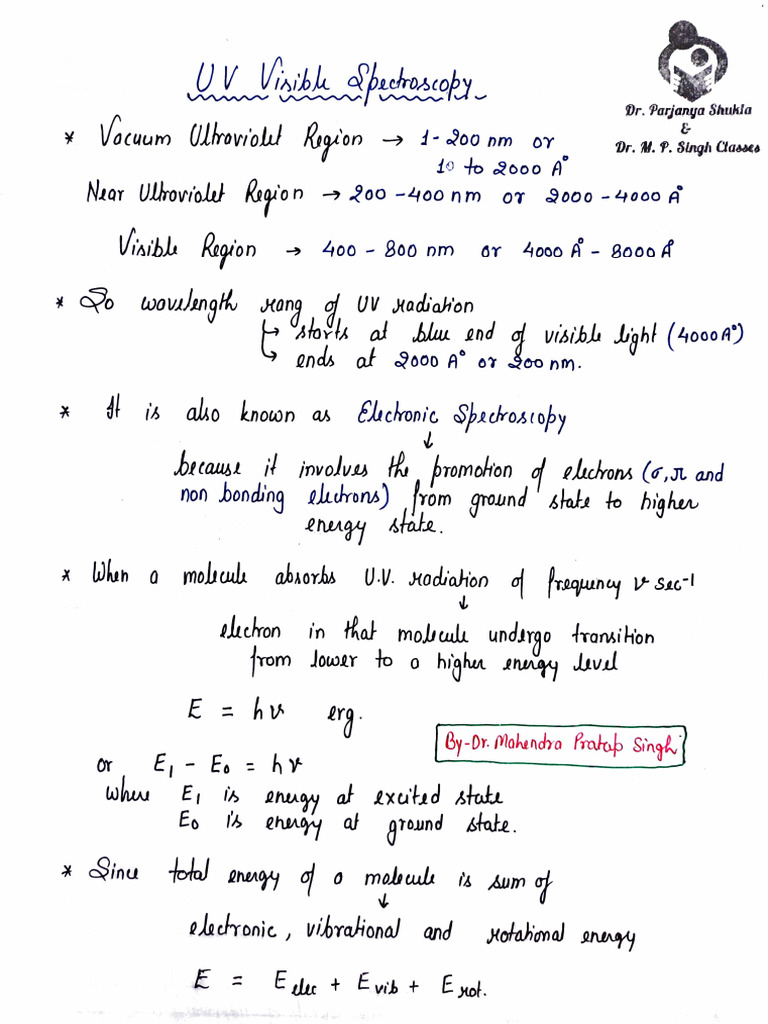 UV Visible Spectroscopy
Dr. Parjanya Shukla
&
Dr. M. P. Singh Classes
* Vacuum Ultraviolet Region → 1-200 nm or
10 to 2000 A°
Near Ultraviolet Region → 200-400 nm or 2000-4000 A°
Visible Region → 400-800 nm or 4000 A° - 8000 A°
* So wavelength rang of UV radiation
↳ starts at blue end of visible light (4000A°)
↳ ends at 2000 A° or 200 nm.
* It is also known as Electronic Spectroscopy
↓
because it involves the promotion of electrons (σ, π and
non bonding electrons) from ground state to higher
energy state.
* When a molecule absorbs U.V. radiation of frequency ν sec⁻¹
↓
electron in that molecule undergo transition
from lower to a higher energy level
E = hν erg.
By-Dr. Mahendra Pratap Singh
or E₁ - E₀ = hν
where E₁ is energy at excited state
E₀ is energy at ground state.
* Since total energy of a molecule is sum of
↓
electronic, vibrational and rotational energy
E = E elec + E vib + E rot.